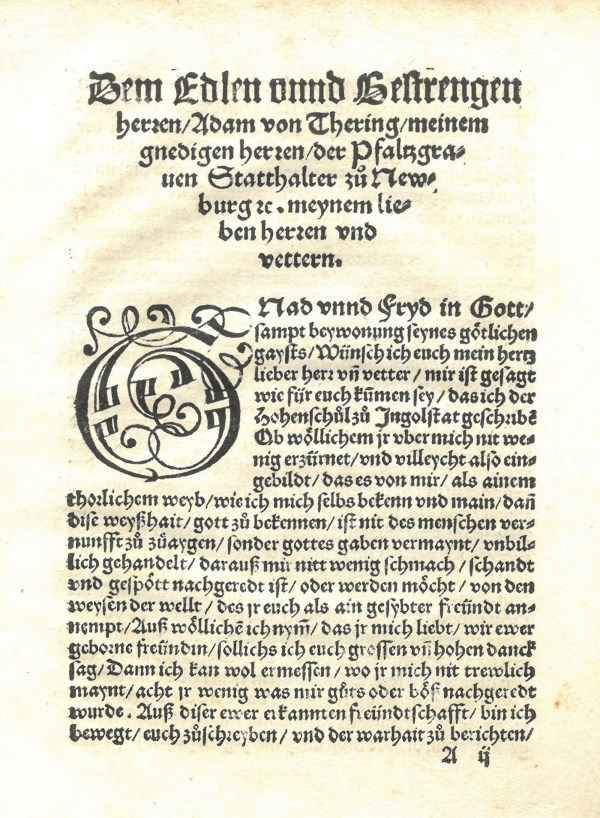 Dem Edlen vnnd Gestrengen
herren/Adam von Thering/meinem
gnedigen herren/der Pfaltzgra-
uen Statthalter zů New-
burg ꝛc. meynem lie-
ben herren vnd
vettern.
GNad vnnd Fryd in Gott/
sampt beywonung seynes götlichen
gaysts/Wünsch ich euch mein hertz
lieber herr vñ vetter/ mir ist gesagt
wie für euch kům̃en sey/ das ich der
Hohenschůl zů Jngolstat geschribẽ
Ob wöllichem jr vber mich nit we-
nig erzürnet/vnd villeycht also ein-
gebildt/ das es von mir/ als ainem
thorlichem weyb/wie ich mich selbs bekenn vnd main/dañ
dise weyßhait/ gott zů bekennen/ ist nit des menschen ver-
nunfft zů zůaygen/ sonder gottes gaben vermaynt/ vnbil-
lich gehandelt/ darauß mir nitt wenig schmach/ schandt
vnd gespött nachgeredt ist/ oder werden möcht/ von den
weysen der wellt/ des jr euch als ain gesybter freündt an-
nempt/Auß wöllichẽ ich nym̃/ das jr mich liebt/ wir ewer
geborne freündin/ söllichs ich euch grossen vñ hohen danck
sag/Dann ich kan wol ermessen/ wo jr mich nit trewlich
maynt/ acht jr wenig was mir gůts oder böß nachgeredt
wurde. Auß diser ewer erkannten freündtschafft/ bin ich
bewegt/ euch zůschreyben/ vnd der warhait zů berichten/
A ij